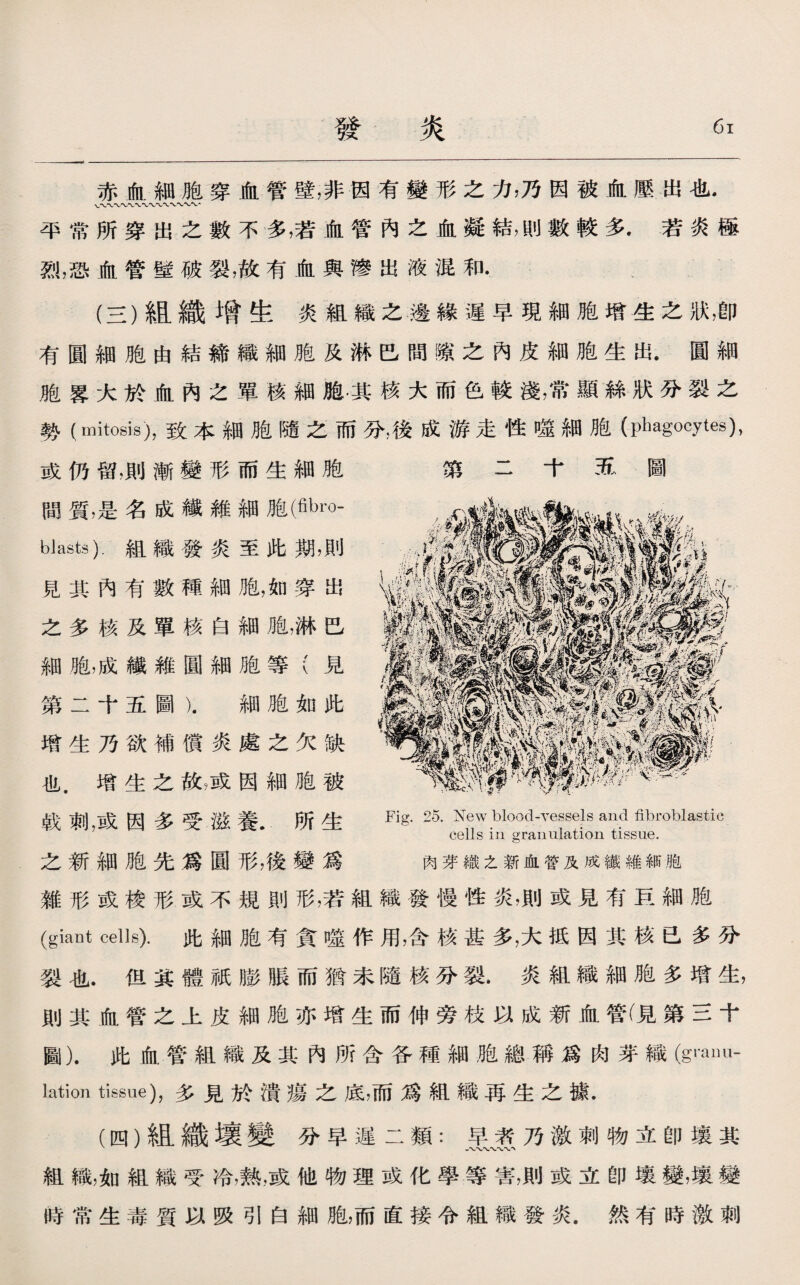 發炎 61
赤血細胞穿血管壁,非因有變形之力,乃因被血壓出也.
平常所穿出之數不多,若血管內之血凝結,則數較多. 若炎極
烈,恐血管壁破裂,故有血與滲出液混和.
(三)組織增生 炎組織之邊緣遲早現細胞增生之狀,卽
有圓細胞由結締織細胞及淋巴間隙之內皮細胞生出. 圓細
胞畧大於血內之單核細胞.其核大而色較淺,常顯絲狀分裂之
勢 (mitosis), 致本細胞隨之而分,後成游走性噬細胞 (phagocytes),
或仍留,則漸變形而生細胞
間質,是名成纖維細胞(fibro-
blasts). 組織發炎至此期,則
見其內有數種細胞,如穿出
之多核及單核白細胞,淋巴
細胞,成纖維圓細胞等(見
第二十五圖). 細胞如此
增生乃欲補償炎處之欠缺
也. 增生之故,或因細胞被
戟刺,或因多受滋養. 所生
之新細胞先爲圓形,後變爲
第二十五圖
Fig. 25. New blood-vessels and fibroblastic
cells in granulation tissue.
肉芽織之新血管及成纖維細胞
雜形或梭形或不規則形,若組織發慢性炎,則或見有巨細胞
(giant cells). 此細胞有貪噬作用,含核甚多,大抵因其核已多分
裂也. 但其體祇膨脹而猶未隨核分裂. 炎組織細胞多增生,
則其血管之上皮細胞亦增生而伸旁枝以成新血管(見第三十
圖). 此血管組織及其內所含各種細胞總稱爲肉芽織 (granu-
lation tissue), 多見於潰瘍之底,而爲組織再生之據.
(四)組織壞變 分早遲二類: 早者乃激刺物立卽壞其
組織,如組織受冷,熱,或他物理或化學等害,則或立卽壞變,壞變
時常生毒質以吸引白細胞,而直接令組織發炎. 然有時激刺